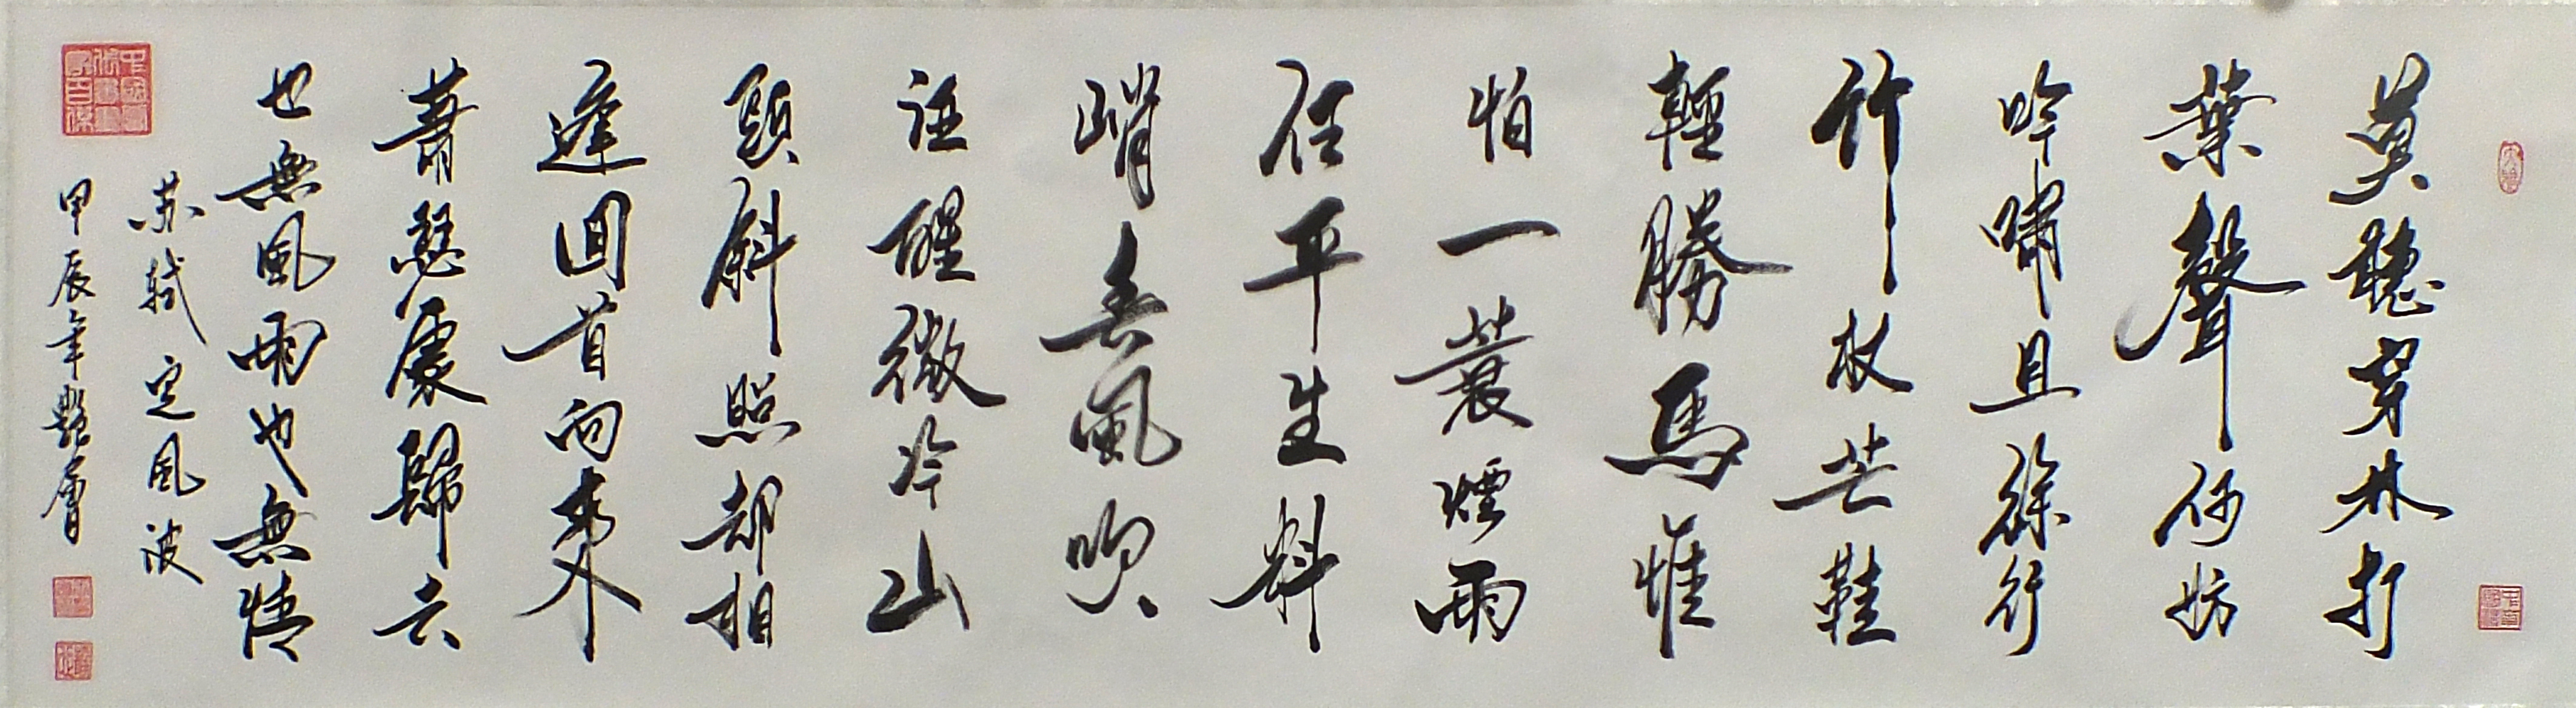 莫聽穿林打
葉聲何妨
吟嘯且徐行
竹杖芒鞋
輕勝馬惟
怕一蓑煙雨
任平生料
峭春風吹
酒醒微冷山
頭斜照却相
逢回首向來
蕭瑟處歸去
也無風雨也無情
苏軾定風波
甲辰年